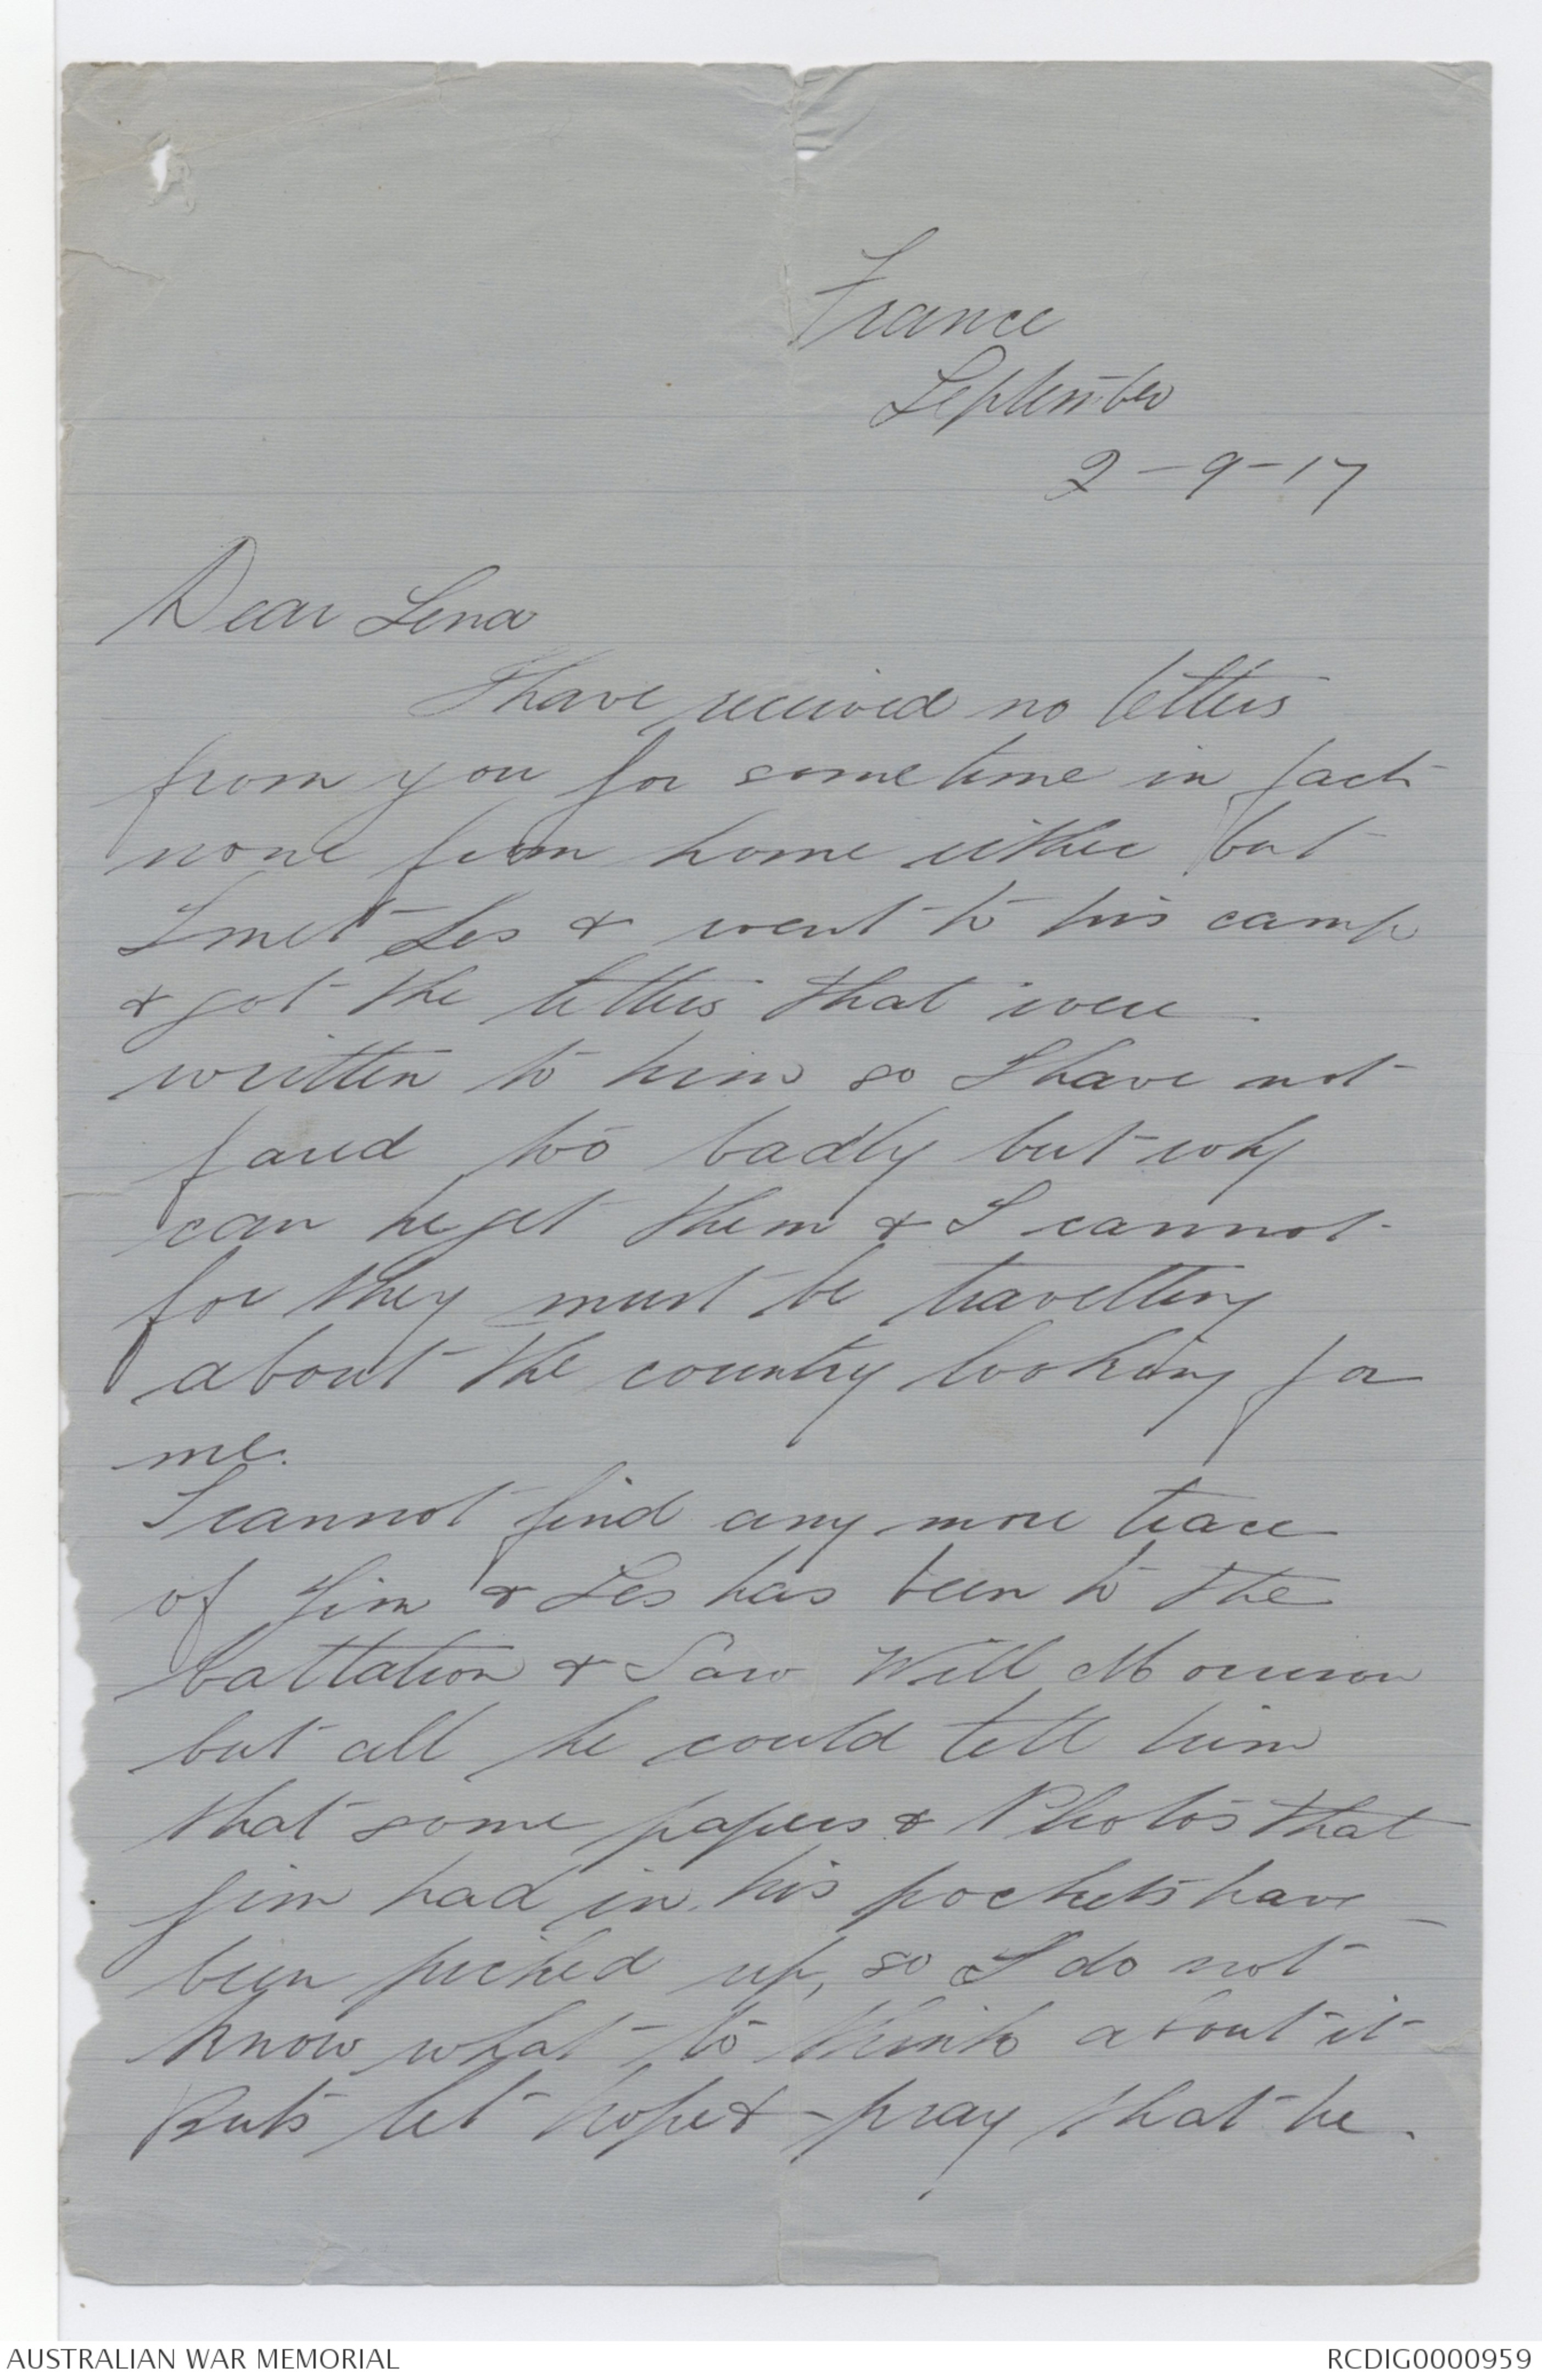 France
September
2-9-17
Dear Lena
I have received no letters
from you for sometime in fact
none from home either but
I met Les & went to his camp
& got the letters that were
written to him so I have not
fared too badly but why
can he get them & I cannot
for they must be travelling
about the country looking for
me.
I cannot find any more trace
of Jim & Les has been to the
battalion & Saw Will Morrison
but all he could tell him
that some papers & Photos that
Jim had in his pockets have
been picked up, so I do not
know what to think about it
But let hope & pray that he
AUSTRALIAN WAR MEMORIAL
RCDIG0000959